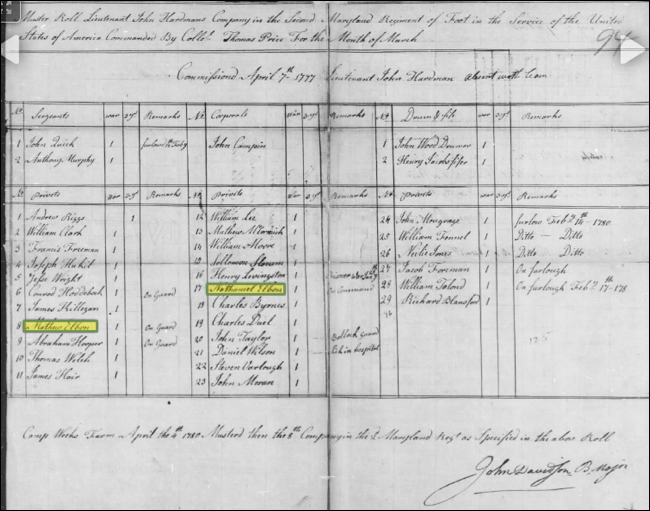 Muster Roll Lieutenant John Hardmans Company in the Second Maryland Regiment of Foot in the Service of the United
States of America Commanded By Collo.l Thomas Price For the Month of March
94
Commissioned April 7th 1777 Lieutenant John Hardman absent with leave
No. Sergeants war 3 ys Remarks No. Corporals War 3 ys Remarks No. Drum & fife war 3 ys Remarks
1 John Quick 1 furlow'd Feby John Campin 1 1 John Wood Drummer 1
2 Anthony Murphy 1 2 Henry fifer 1
No. Privits war 3 ys Remarks No. Privits War 3 ys Remarks No. Privits war 3 ys Remarks
1 Andrew Riggs 1 12 William Lee 1 24 John Musgrage 1 furlow Feb.y 14th 1780
2 William Clark 1 13 Mathew McCormick 1 25 William Fennel 1 Ditto — Ditto
3 Francis Freeman 1 14 William Moore 1 26 Neele Jones 1 Ditto Ditto
4 Joseph Habit 1 15 Solloman 1 27 Jacob Foreman 1 On furlough
5 Jesse Wright 1 16 Henry Levingston 1 28 William Toland 1 On furlough Feb.y 17th 178
6 Conrod 1 On Guard 17 Nathaniel Elbon 1 On Command 29 Richard Blansford 1
7 James Killegan 1 18 Charles Byrnes 1
8 Mathew Elbon 1 On Guard 19 Charles Duel 1
9 Abraham Hooper 1 On Guard 20 John Taylor 1 Bullock Guard
10 Thomas Welch 1 21 Daniel Wilson 1 Sick in hospital
11 James Hair 1 22 Steven Varlough 1
23 John Moran 1
Camp Weeks Farm April the 4th 1780 Musterd then the 8th Company in the 2d Maryland Regt as Specified in the abov Roll
John Davidson B. Major